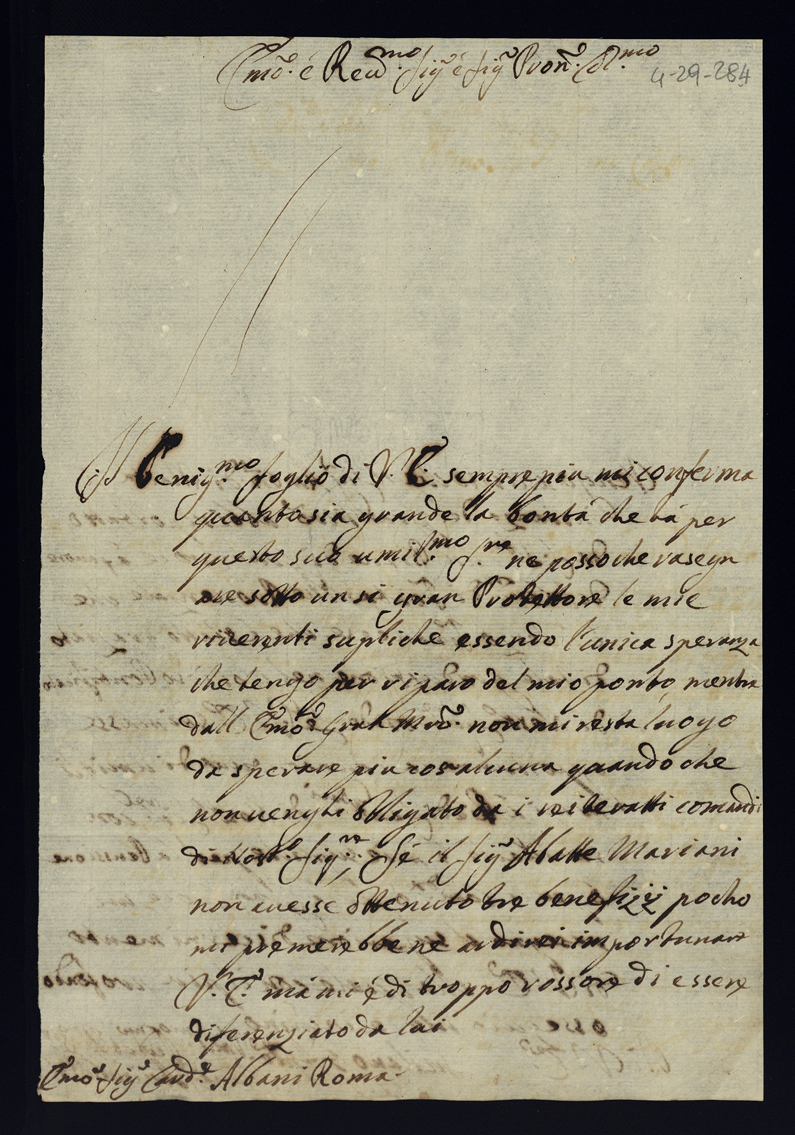 Emo. é Reumo Sigr é Sigr Pron. Colmo
4-29-284
Il Benigmo foglio di V. E. sempre piu mi conferma
quanto sia grande la bontá che há per
questo suo umilmo Sre ne posso che rasegn
are sotto un si gran Protettore le mie
riverenti supliche essendo l'unica speranza
che tengo per riparo del mio ponto mentre
dall Emo Gran Mro. non mi resta luogo
da sperare piu cosa alcuna quando che
non venghi obligato da i reiteratti comandi
di Nostro Sigre. Sé il Sigr Abatte Mariani
non avesse ottenuto tre benefizzi pocho
mi premerebbe ne ardirei importunare
V. E. ma mi é di troppo rossore di essere
diferenziato da lui
Emo. Sigr Cardle Albani Roma.